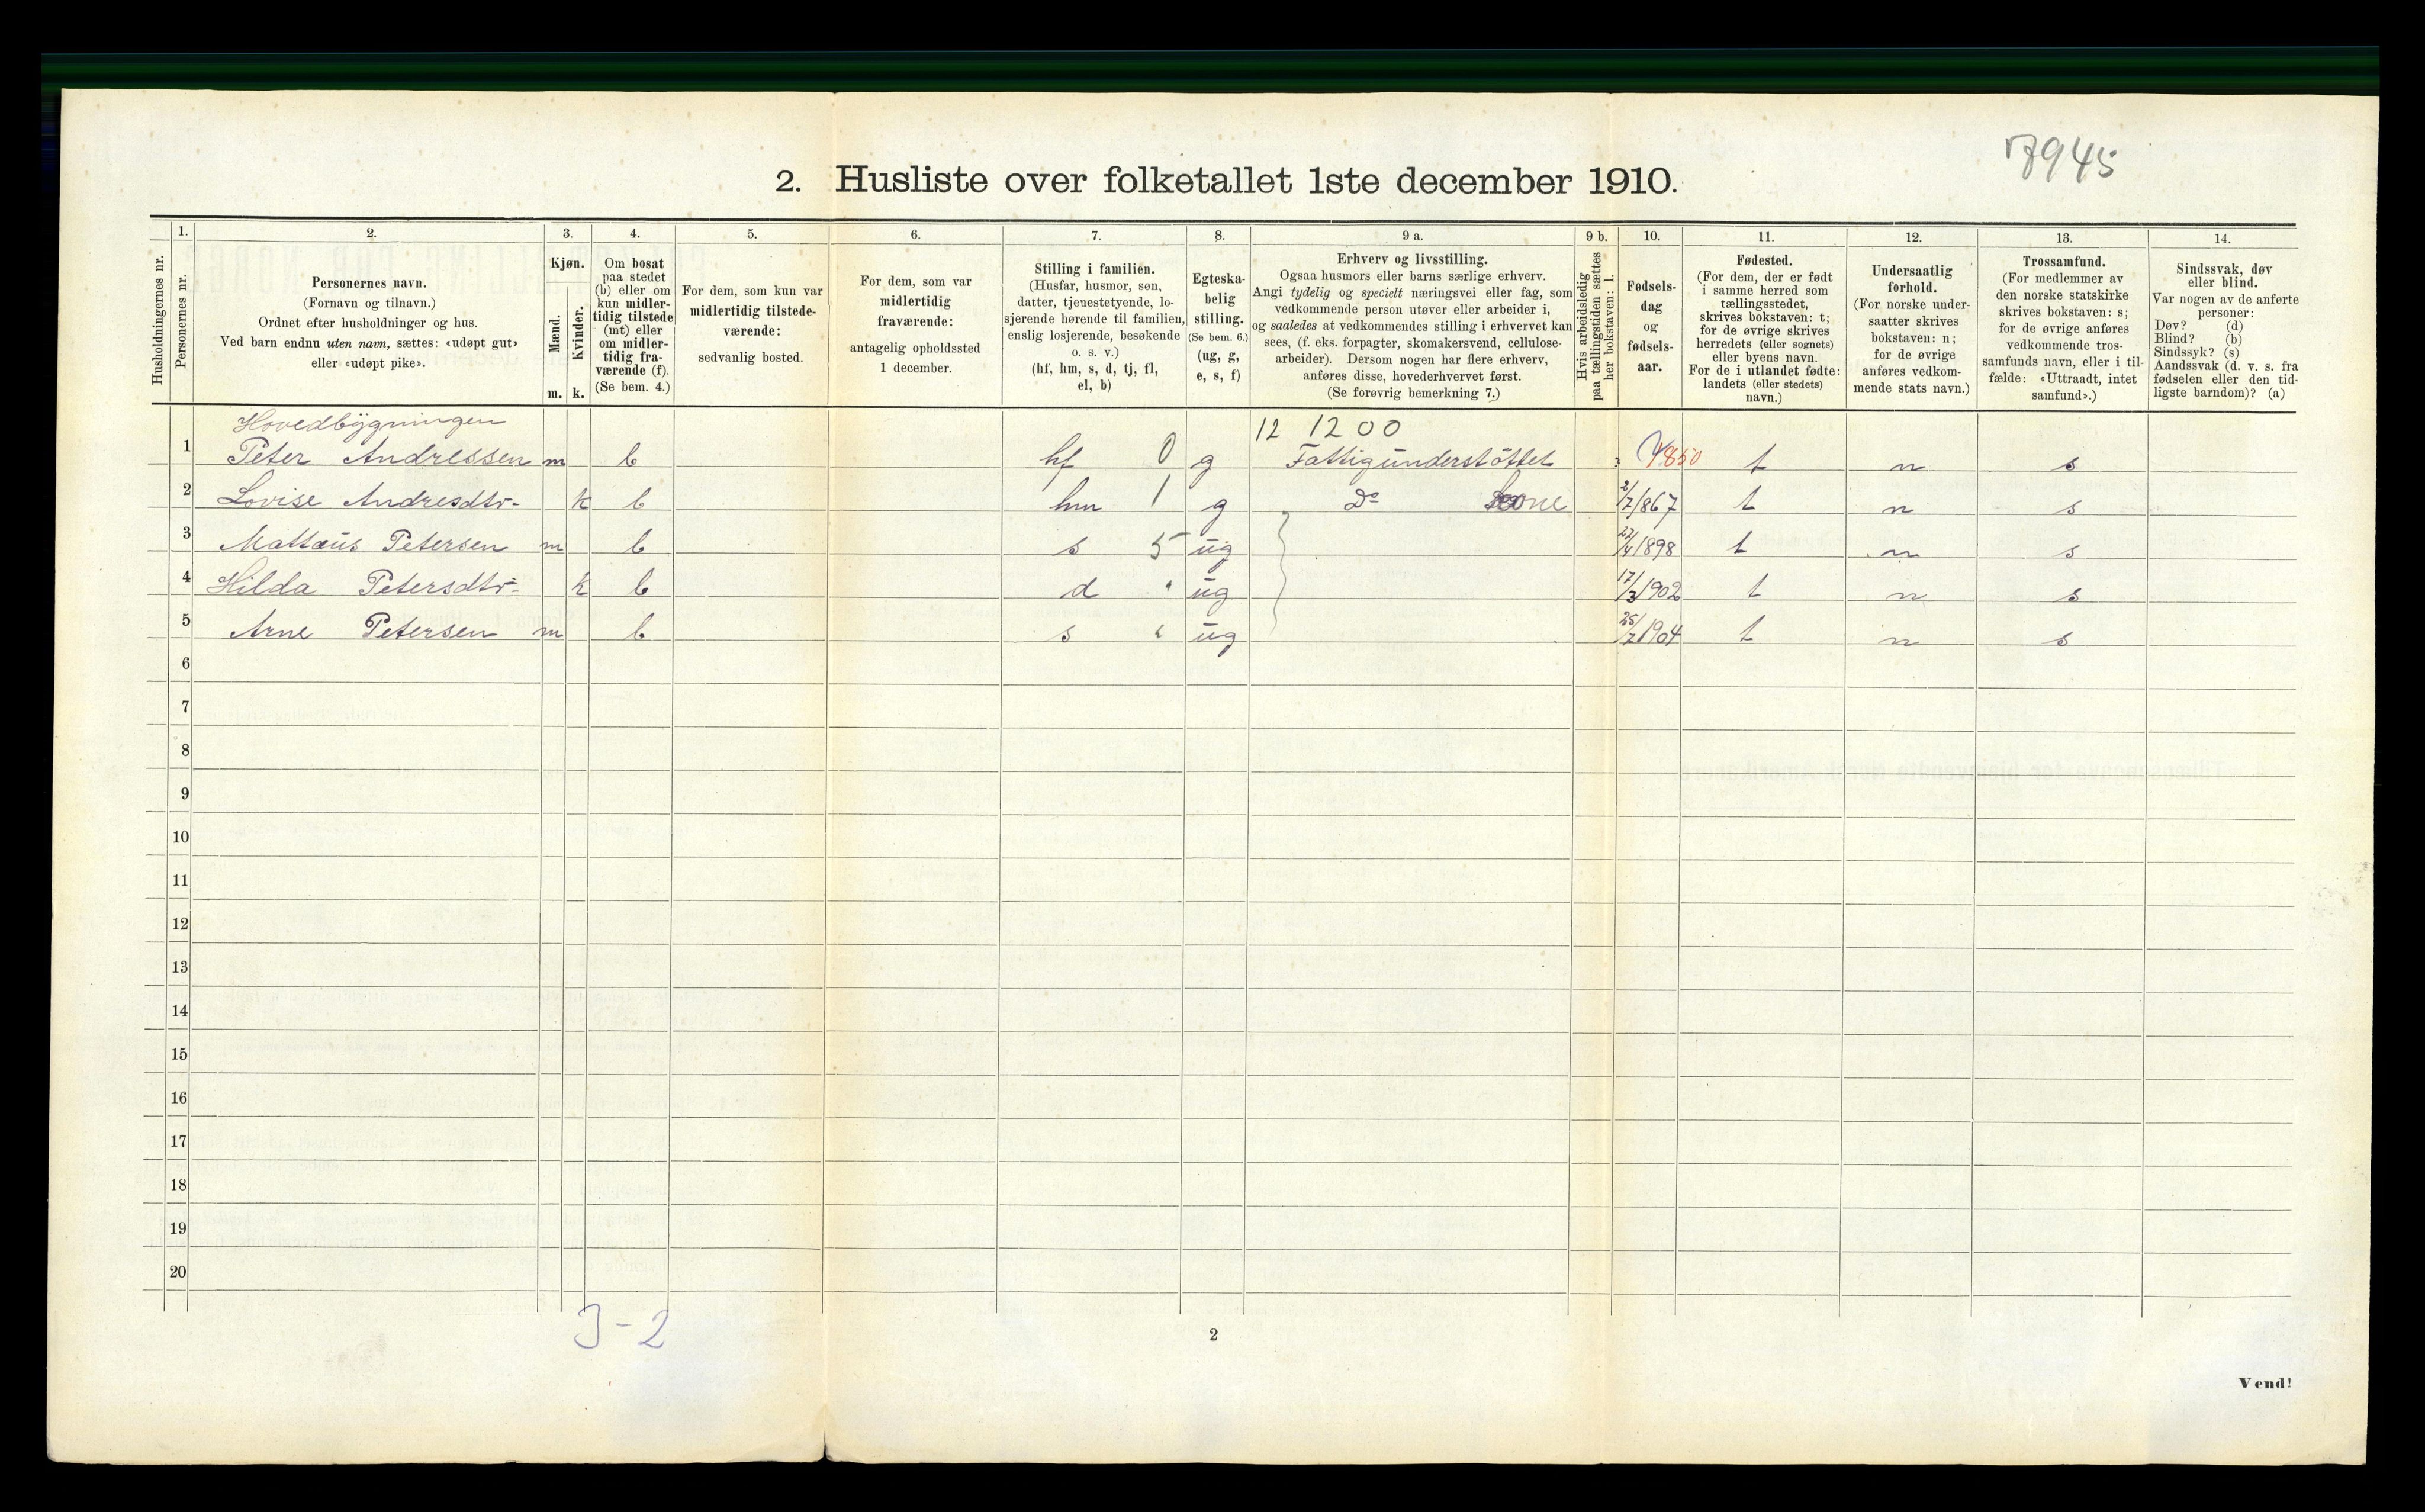 7945
2. Husliste over folketallet 1ste december 1910.
Husholdningernes nr.
1.
Personernes nr.
2.
Personernes navn.
(Fornavn og tilnavn.)
Ordnet efter husholdninger og hus.
Ved barn endnu uten navn, sættes: «udøpt gut»
eller «udøpt pike».
3.
Kjøn.
Mænd.
Kvinder.
m. k.
4.
Om bosat
paa stedet
(b) eller om
kun midler-
tidig tilstede
(mt) eller
om midler-
tidig fra-
værende (f).
(Se bem. 4.)
5.
For dem, som kun var
midlertidig tilstede-
værende:
sedvanlig bosted.
6.
For dem, som var
midlertidig
fraværende:
antagelig opholdssted
1 december.
7.
Stilling i familien.
(Husfar, husmor, søn,
datter, tjenestetyende, lo-
sjerende hørende til familien,
enslig losjerende, besøkende
o. s. v.)
(hf, hm, s, d, tj, fl,
el, b)
8.
Egteska-
belig
stilling.
(Se bem. 6.)
(ug, g,
e, s, f)
9 a.
Erhverv og livsstilling.
Ogsaa husmors eller barns særlige erhverv.
Angi tydelig og specielt næringsvei eller fag, som
vedkommende person utøver eller arbeider i,
og saaledes at vedkommendes stilling i erhvervet kan
sees, (f. eks. forpagter, skomakersvend, cellulose-
arbeider). Dersom nogen har flere erhverv,
anføres disse, hovederhvervet først.
(Se forøvrig bemerkning 7.)
9 b.
Hvis arbeidsledig
paa tællingstiden sættes
her bokstaven: l.
10.
Fødsels-
dag
og
fødsels-
aar.
11.
Fødested.
(For dem, der er født
i samme herred som
tællingsstedet,
skrives bokstaven: t;
for de øvrige skrives
herredets (eller sognets)
eller byens navn.
For de i utlandet fødte:
landets (eller stedets)
navn.)
12.
Undersaatlig
forhold.
(For norske under-
saatter skrives
bokstaven: n;
for de øvrige
anføres vedkom-
mende stats navn.)
13.
Trossamfund.
(For medlemmer av
den norske statskirke
skrives bokstaven: s;
for de øvrige anføres
vedkommende tros-
samfunds navn, eller i til-
fælde: «Uttraadt, intet
samfund».)
14.
Sindssvak, døv
eller blind.
Var nogen av de anførte
personer:
Døv? (d)
Blind? (b)
Sindssyk? (s)
Aandssvak (d. v. s. fra
fødselen eller den tid-
ligste barndom)? (a)
Hovedbygningen 12 1200
1 Peter Andressen m b hf 0 g Fattigunderstöttet 1850 t n s
2 Lovise Andresdtr. k b hm 1 g Do kone 2/7/867 t n s
3 Mattæus Petersen m b s 5 ug 22/4 1898 t n s
4 Hilda Petersdtr. k b d " ug 17/3 1902 t n s
5 Arne Petersen m b s " ug 25/7 1904 t n s
6
7
8
9
10
11
12
13
14
15
16
17
18
19
20
3-2
2
Vend!